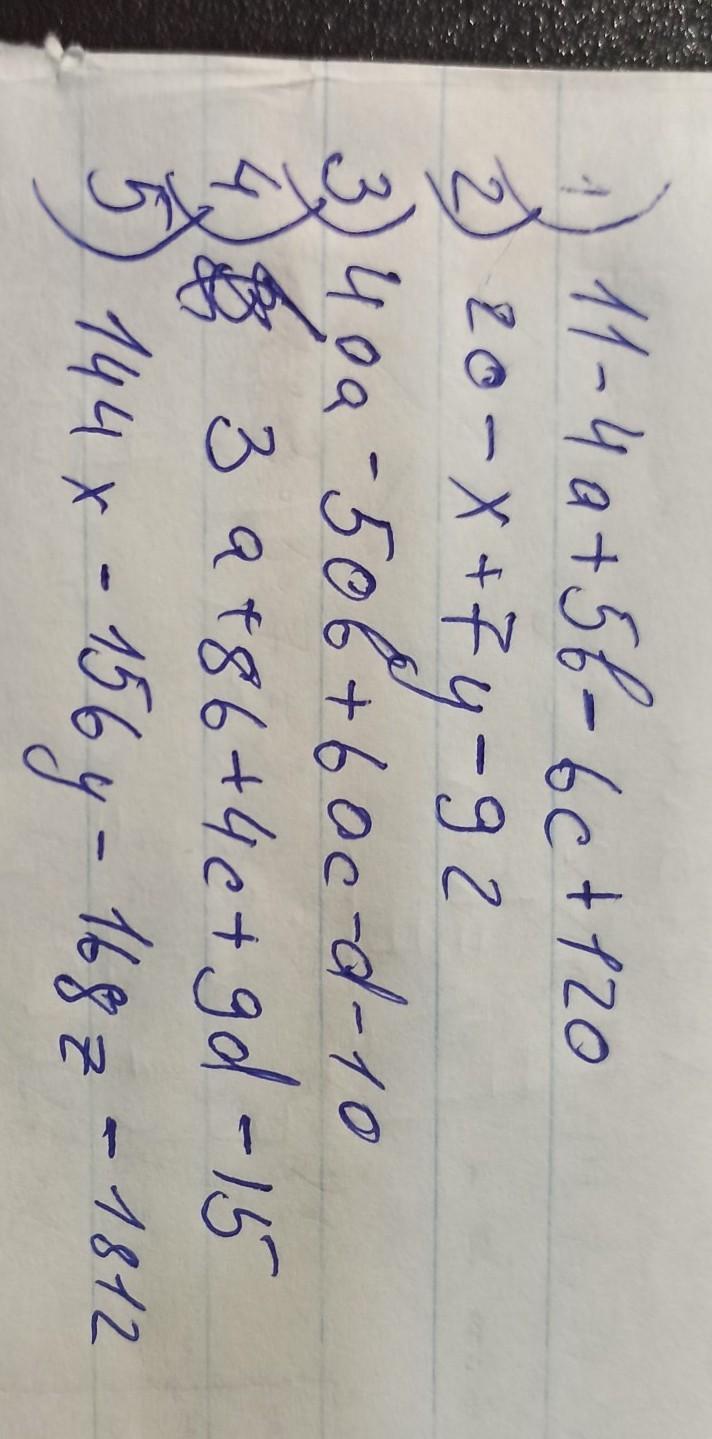 1) 11-4a+5b-6c+120
2) 20-x+7y-92
3) 40a-50b+60c-d-10
4) 3a+8b+4c+9d-15
5) 144x-156y-168z-1812